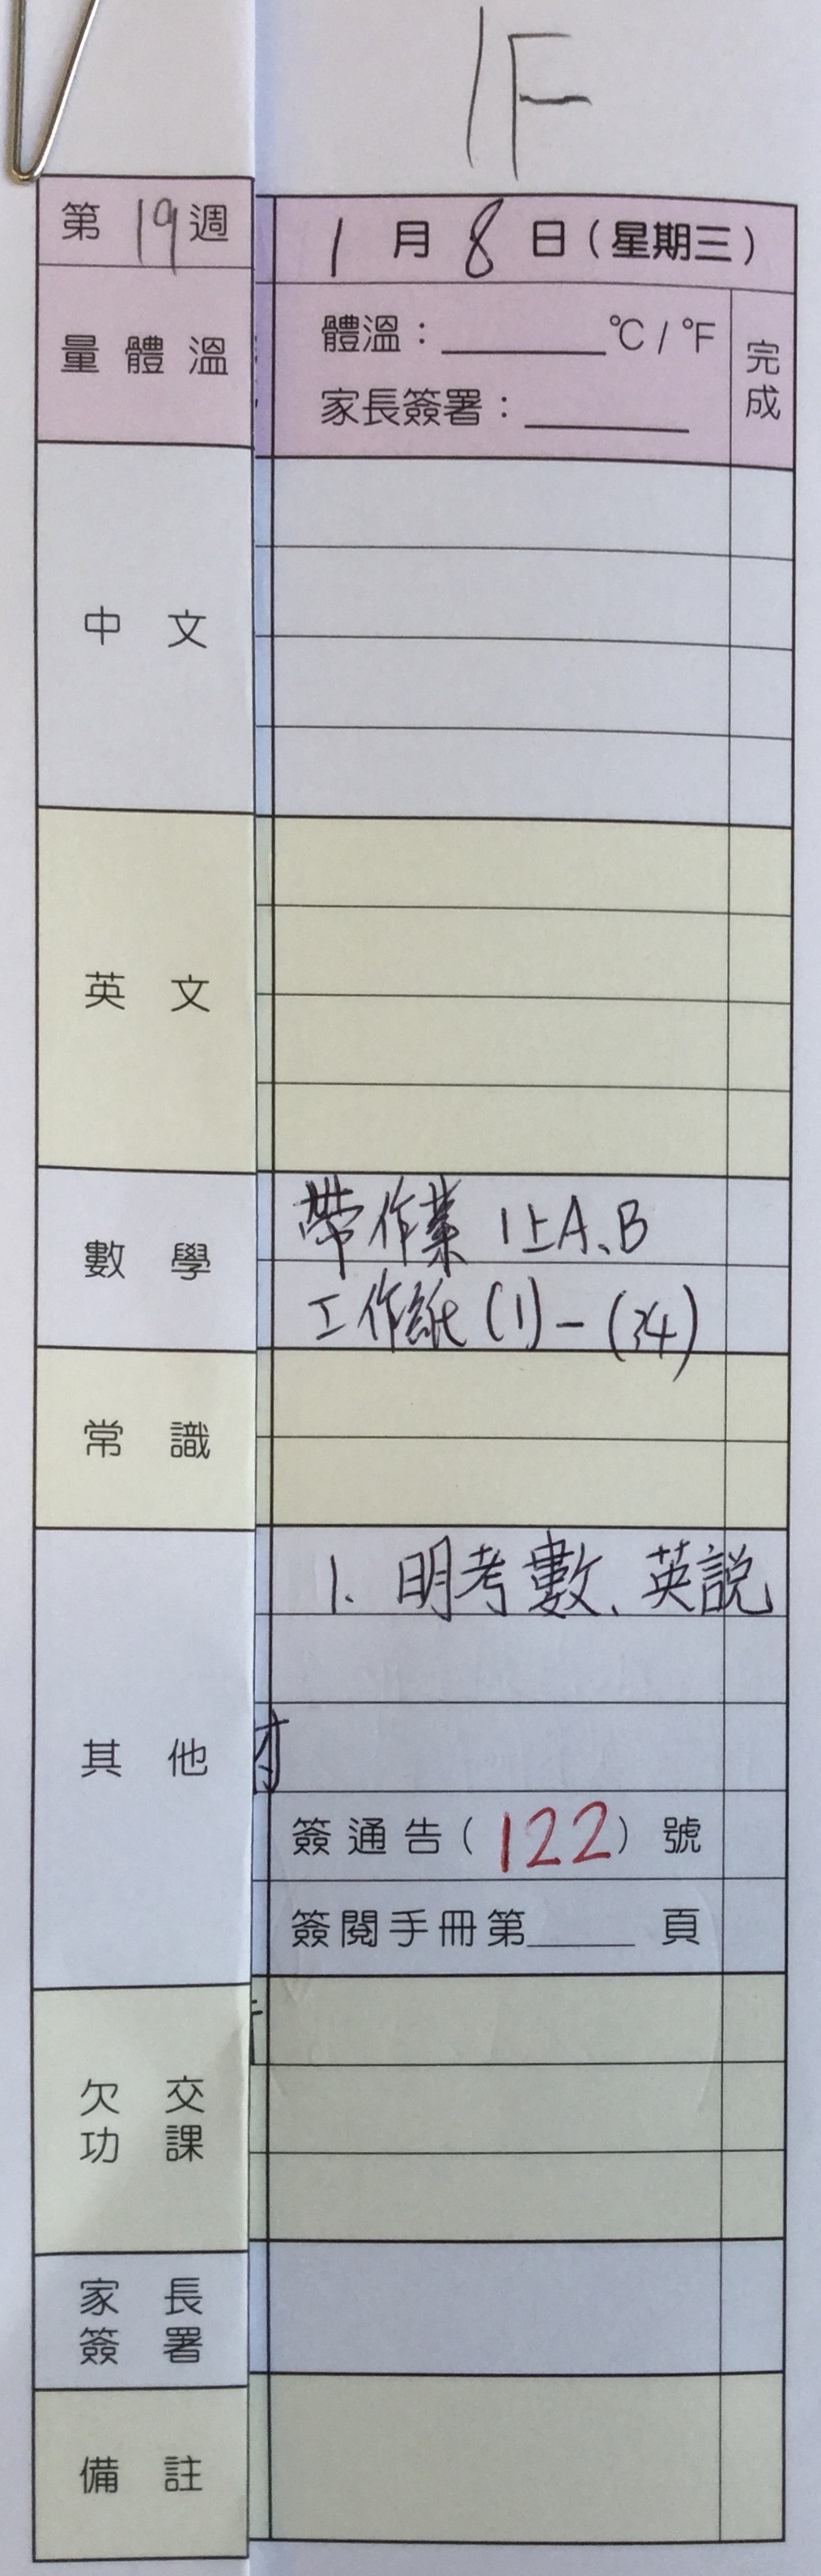 1F
第19週 1月8日(星期三)
量體溫 體溫：______°C / °F 完成
家長簽署：______
中文
英文
數學 帶作業 1上A、B
工作紙(1)-(34)
常識
其他 1. 明考數、英說
簽通告(122)號
簽閱手冊第____頁
欠交
功課
家長
簽署
備註